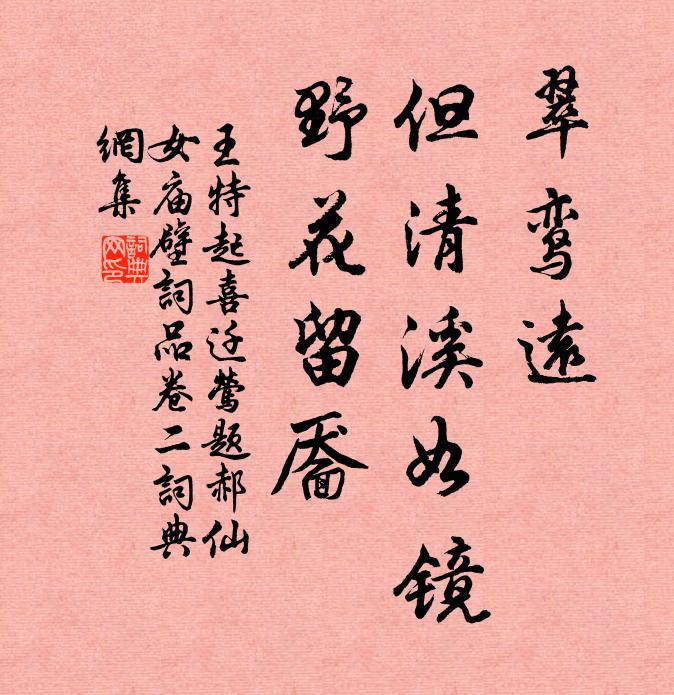 翠鸾遠
但清溪如镜
野花留靥
王特起喜迁莺题郝仙
女庙壁詞品卷二詞典
網集
詞典网印